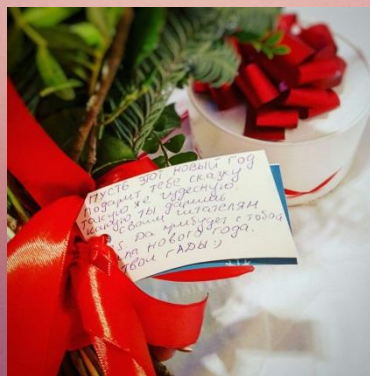 Пусть этот новый год
подарит тебе сказку
такую же чудесную,
какую ты даришь
своим читателям
P.S. Да прибудет с тобой
сила нового года.
Твои гАДЫ :)